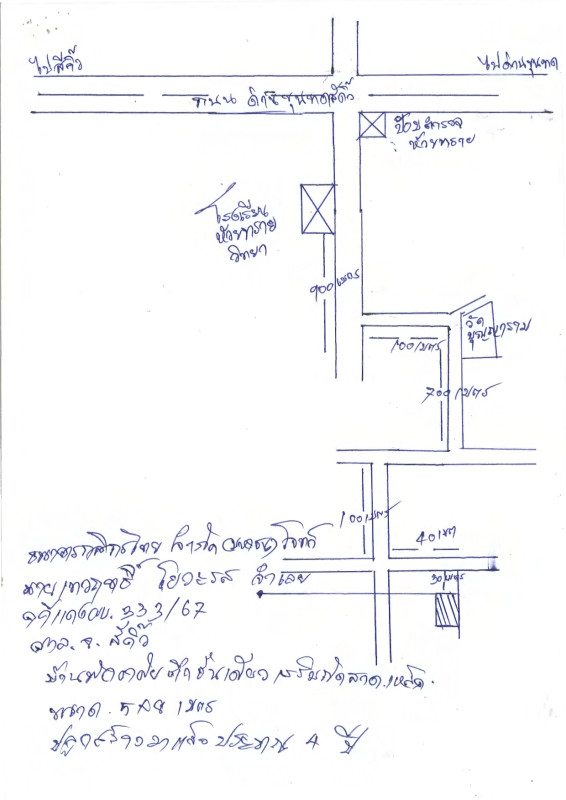 ไปสีคิ้ว
ไปด่านขุนทด
ถนน ด่านขุนทดสีคิ้ว
ป้อมตำรวจ
ห้วยทราย
โรงเรียน
ห้วยทราย
วิทยา
900 เมตร
วัด
บุญญาราม
100 เมตร
700 เมตร
100 เมตร
40 เมตร
30 เมตร
ธนาคารกสิกรไทย จำกัด มหาชน โจทก์
นาย จำเลย
333/67
ศาล.จ. สีคิ้ว
บ้านพักอาศัยตึกชั้นเดียว
ขนาด. เมตร
ปลูกสร้างมาแล้วประมาณ 4 ปี